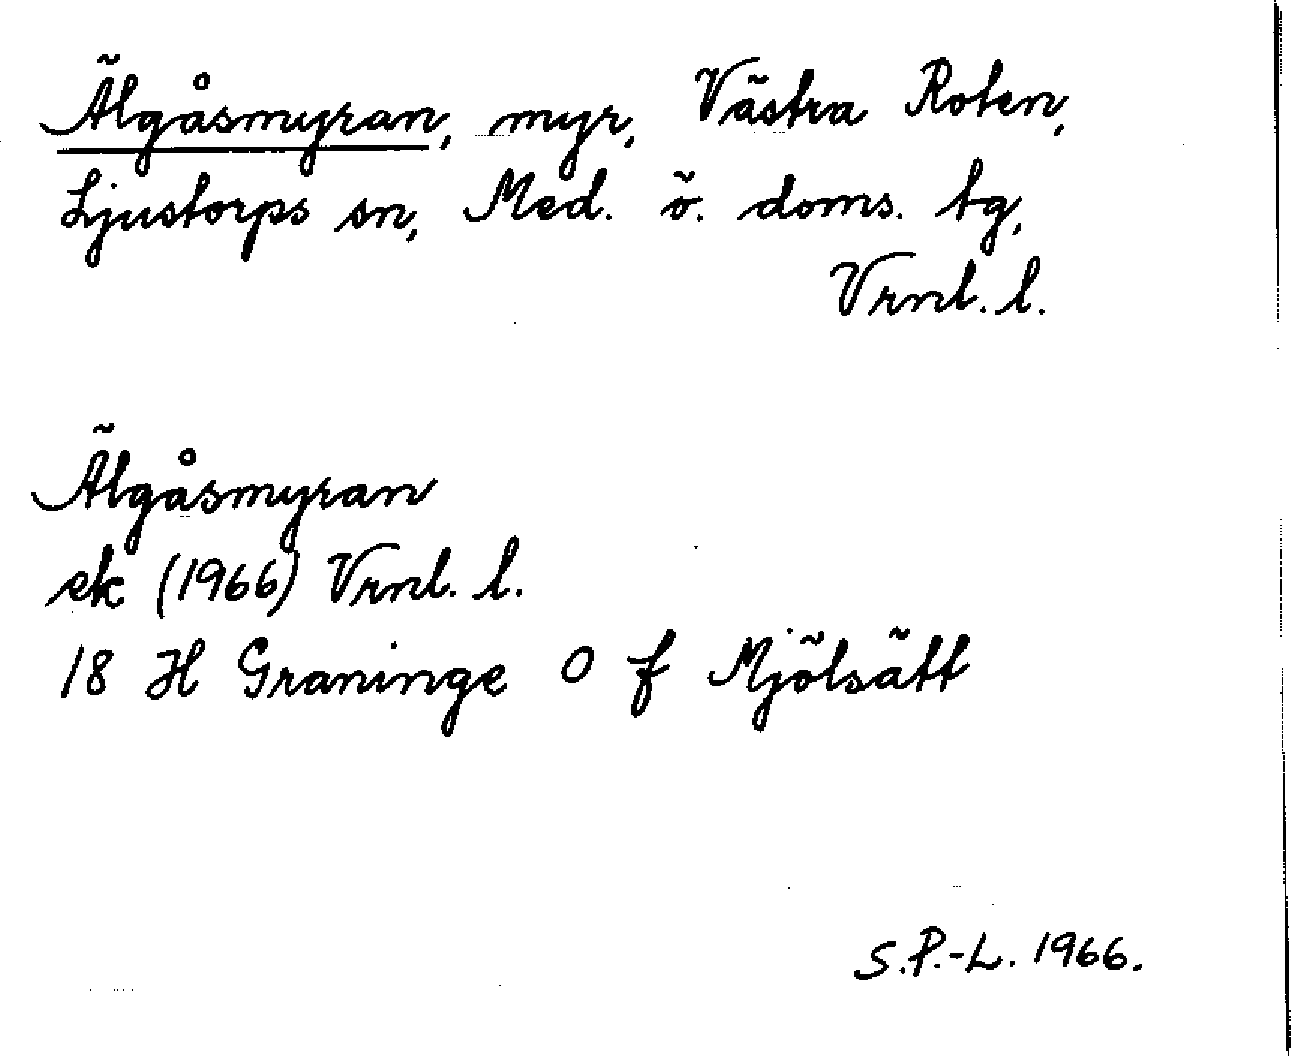 Älgåsmyran, myr, Västra Roten,
Ljustorps sn, Med. ö. doms. tg,
Vrnl. l.
Älgåsmyran
ek (1966) Vrnl. l.
18 H Graninge O f Mjölsätt
S.P.-L. 1966.